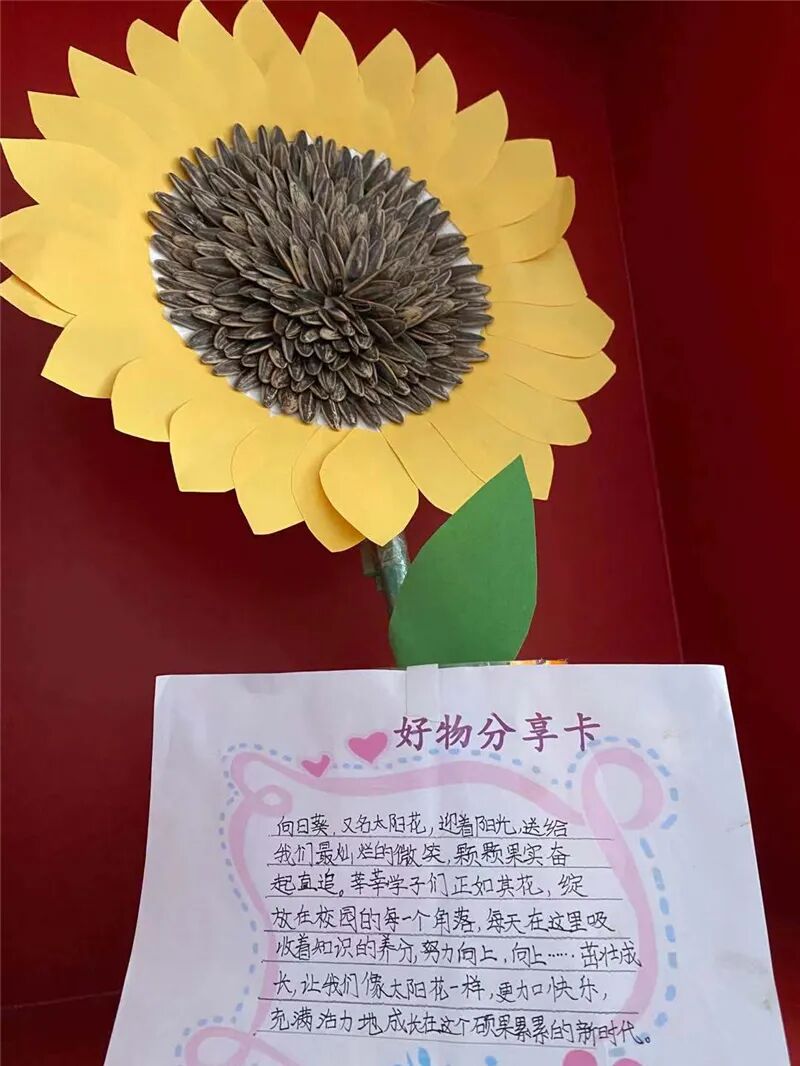 好物分享卡
向日葵,又名太阳花,迎着阳光,送给
我们最灿烂的微笑,颗颗果实奋
起直追。莘莘学子们正如其花,绽
放在校园的每一个角落,每天在这里吸
收着知识的养分,努力向上,向上……茁壮成
长,让我们像太阳花一样,更加快乐,
充满活力地成长在这个硕果累累的新时代。